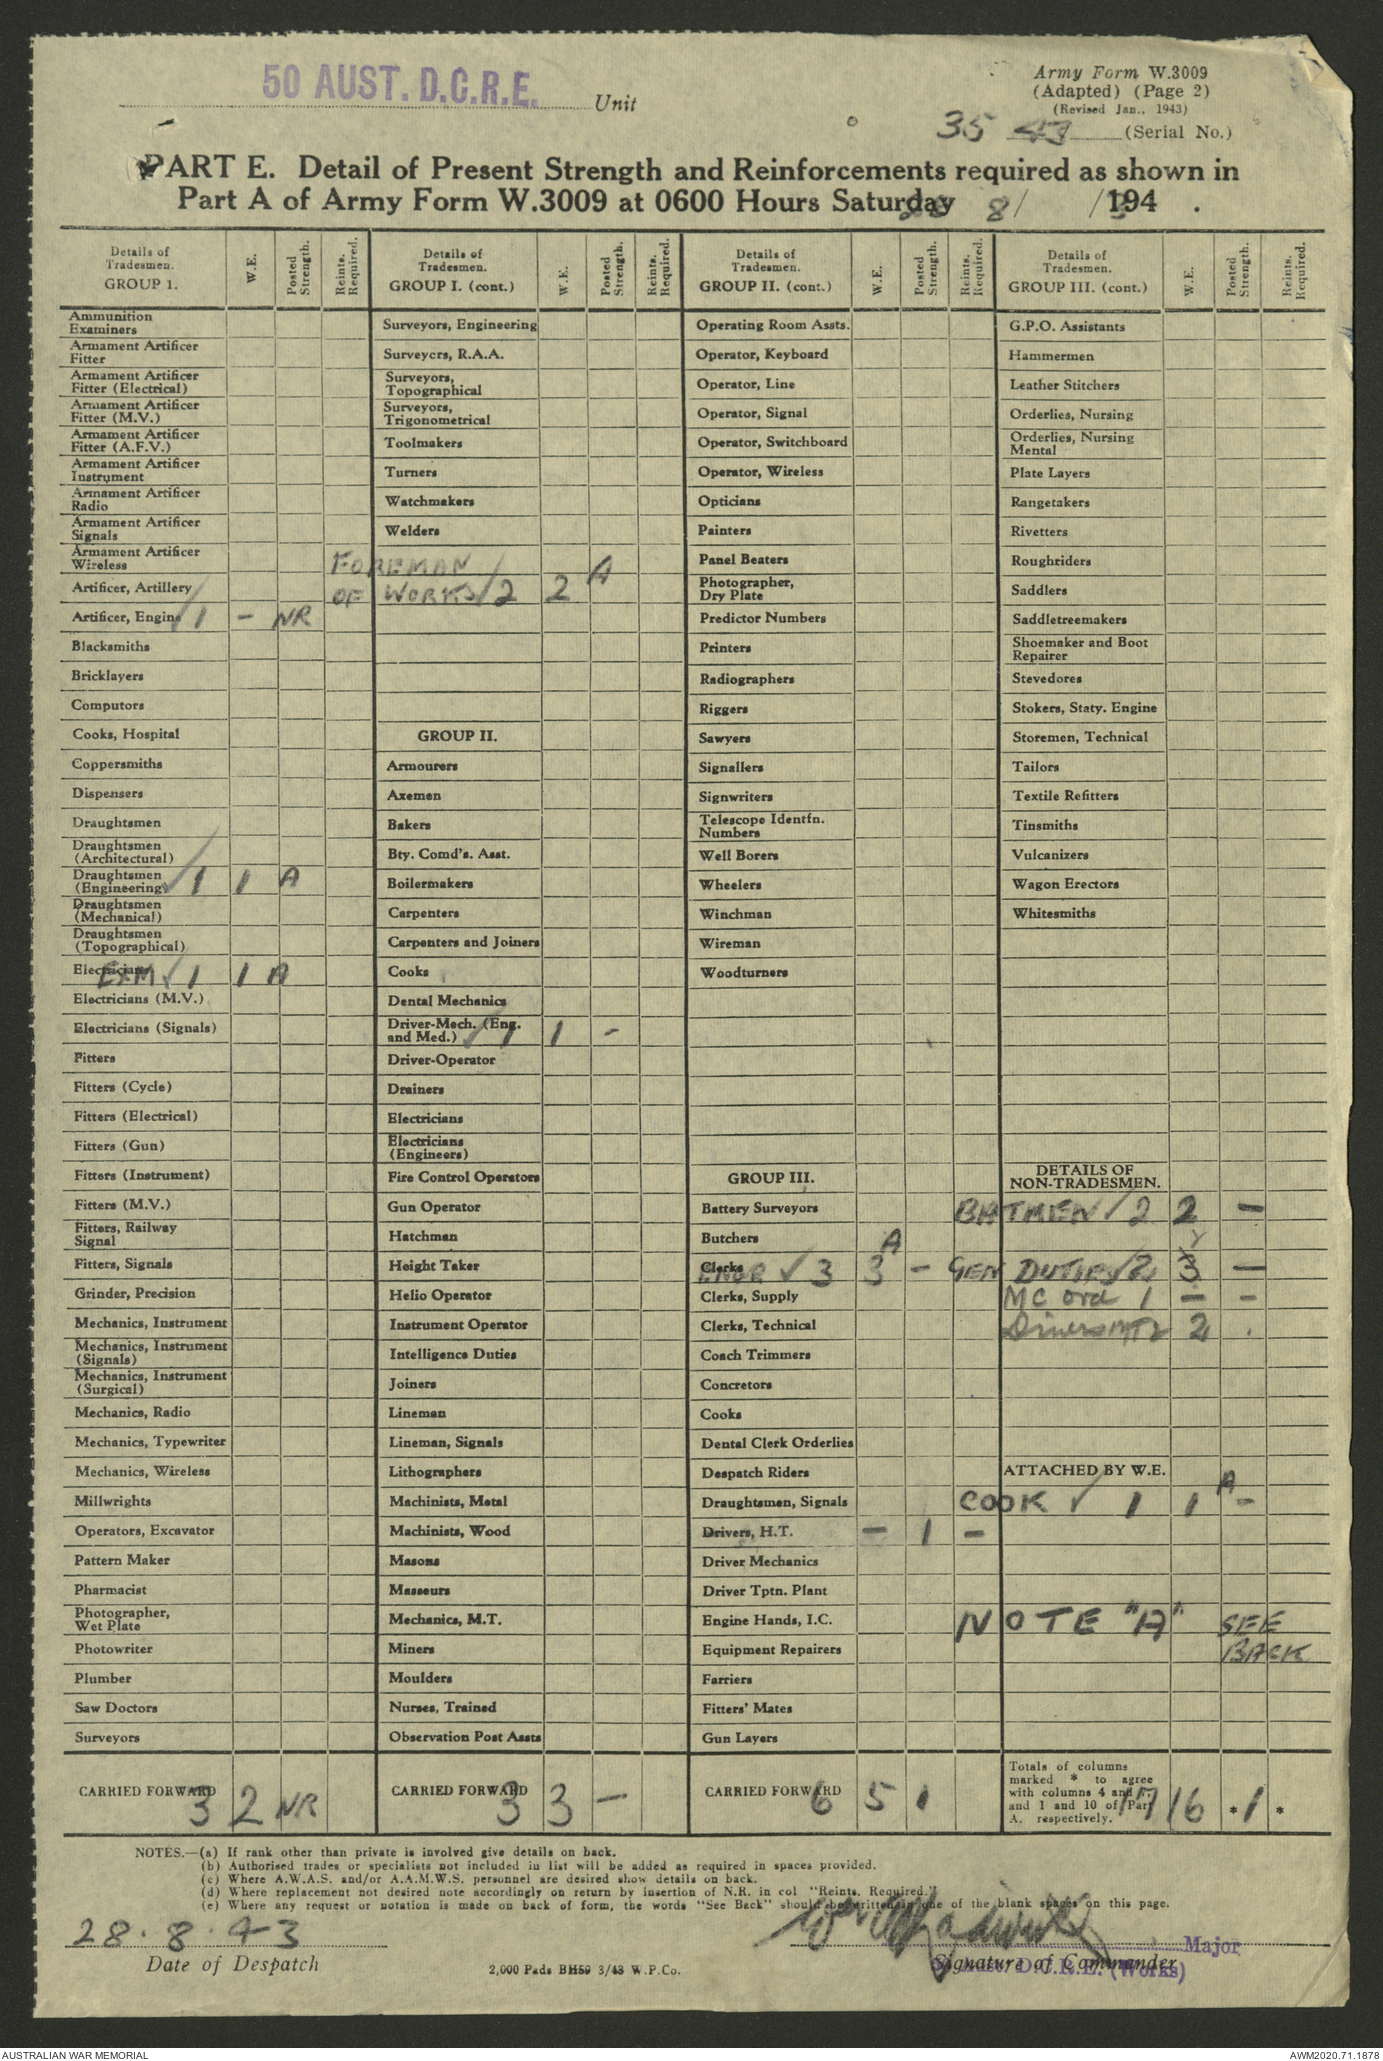 50 AUST. D.C.R.E. Unit
Army Form W.3009
(Adapted) (Page 2)
(Revised Jan., 1943)
35 43 (Serial No.)
PART E. Detail of Present Strength and Reinforcements required as shown in
Part A of Army Form W.3009 at 0600 Hours Saturday 28 8/ /194 3.
Details of
Tradesmen.
GROUP 1.
W.E.
Posted
Strength.
Reints.
Required.
Ammunition
Examiners
Armament Artificer
Fitter
Armament Artificer
Fitter (Electrical)
Armament Artificer
Fitter (M.V.)
Armament Artificer
Fitter (A.F.V.)
Armament Artificer
Instrument
Armament Artificer
Radio
Armament Artificer
Signals
Armament Artificer
Wireless
Artificer, Artillery
Artificer, Engine / 1 - NR
Blacksmiths
Bricklayers
Computors
Cooks, Hospital
Coppersmiths
Dispensers
Draughtsmen
Draughtsmen
(Architectural)
Draughtsmen
(Engineering) ✓ 1 1 A
Draughtsmen
(Mechanical)
Draughtsmen
(Topographical)
Electricians EXM ✓ 1 1 A
Electricians (M.V.)
Electricians (Signals)
Fitters
Fitters (Cycle)
Fitters (Electrical)
Fitters (Gun)
Fitters (Instrument)
Fitters (M.V.)
Fitters, Railway
Signal
Fitters, Signals
Grinder, Precision
Mechanics, Instrument
Mechanics, Instrument
(Signals)
Mechanics, Instrument
(Surgical)
Mechanics, Radio
Mechanics, Typewriter
Mechanics, Wireless
Millwrights
Operators, Excavator
Pattern Maker
Pharmacist
Photographer,
Wet Plate
Photowriter
Plumber
Saw Doctors
Surveyors
CARRIED FORWARD 3 2 NR
Details of
Tradesmen.
GROUP I. (cont.)
W.E.
Posted
Strength.
Reints.
Required.
Surveyors, Engineering
Surveyors, R.A.A.
Surveyors,
Topographical
Surveyors,
Trigonometrical
Toolmakers
Turners
Watchmakers
Welders
FOREMAN
OF WORKS / 2 2 A
GROUP II.
Armourers
Axemen
Bakers
Bty. Comd's. Asst.
Boilermakers
Carpenters
Carpenters and Joiners
Cooks
Dental Mechanics
Driver-Mech. (Eng.
and Med.) ✓ 1 1 -
Driver-Operator
Drainers
Electricians
Electricians
(Engineers)
Fire Control Operators
Gun Operator
Hatchman
Height Taker
Helio Operator
Instrument Operator
Intelligence Duties
Joiners
Lineman
Lineman, Signals
Lithographers
Machinists, Metal
Machinists, Wood
Masons
Masseurs
Mechanics, M.T.
Miners
Moulders
Nurses, Trained
Observation Post Assts
CARRIED FORWARD 3 3 -
Details of
Tradesmen.
GROUP II. (cont.)
W.E.
Posted
Strength.
Reints.
Required.
Operating Room Assts.
Operator, Keyboard
Operator, Line
Operator, Signal
Operator, Switchboard
Operator, Wireless
Opticians
Painters
Panel Beaters
Photographer,
Dry Plate
Predictor Numbers
Printers
Radiographers
Riggers
Sawyers
Signallers
Signwriters
Telescope Identfn.
Numbers
Well Borers
Wheelers
Winchman
Wireman
Woodturners
GROUP III.
Battery Surveyors
Butchers
Clerks ✓ 3 3 A -
Clerks, Supply
Clerks, Technical
Coach Trimmers
Concretors
Cooks
Dental Clerk Orderlies
Despatch Riders
Draughtsmen, Signals
Drivers, H.T. - 1 -
Driver Mechanics
Driver Tptn. Plant
Engine Hands, I.C.
Equipment Repairers
Farriers
Fitters' Mates
Gun Layers
CARRIED FORWARD 6 5 1
Details of
Tradesmen.
GROUP III. (cont.)
W.E.
Posted
Strength.
Reints.
Required.
G.P.O. Assistants
Hammermen
Leather Stitchers
Orderlies, Nursing
Orderlies, Nursing
Mental
Plate Layers
Rangetakers
Rivetters
Roughriders
Saddlers
Saddletreemakers
Shoemaker and Boot
Repairer
Stevedores
Stokers, Staty. Engine
Storemen, Technical
Tailors
Textile Refitters
Tinsmiths
Vulcanizers
Wagon Erectors
Whitesmiths
DETAILS OF
NON-TRADESMEN.
BATMEN ✓ 2 2 -
GEN DUTIES ✓ 2 3 -
MC Ord 1 - -
Drivers MT 2 2 .
ATTACHED BY W.E.
COOK ✓ 1 1 A -
NOTE "A" SEE
BACK
Totals of columns
marked * to agree
with columns 4 and 7
and 1 and 10 of Part
A. respectively. 17 16 * 1 *
NOTES.—(a) If rank other than private is involved give details on back.
(b) Authorised trades or specialists not included in list will be added as required in spaces provided.
(c) Where A.W.A.S. and/or A.A.M.W.S. personnel are desired show details on back.
(d) Where replacement not desired note accordingly on return by insertion of N.R. in col "Reints. Required."
(e) Where any request or notation is made on back of form, the words "See Back" should be written in one of the blank spaces on this page.
28.8.43
Date of Despatch
2,000 Pads BH59 3/43 W.P.Co.
Major
Signature of Commander
D.C.R.E. (Works)
AUSTRALIAN WAR MEMORIAL
AWM2020.71.1878